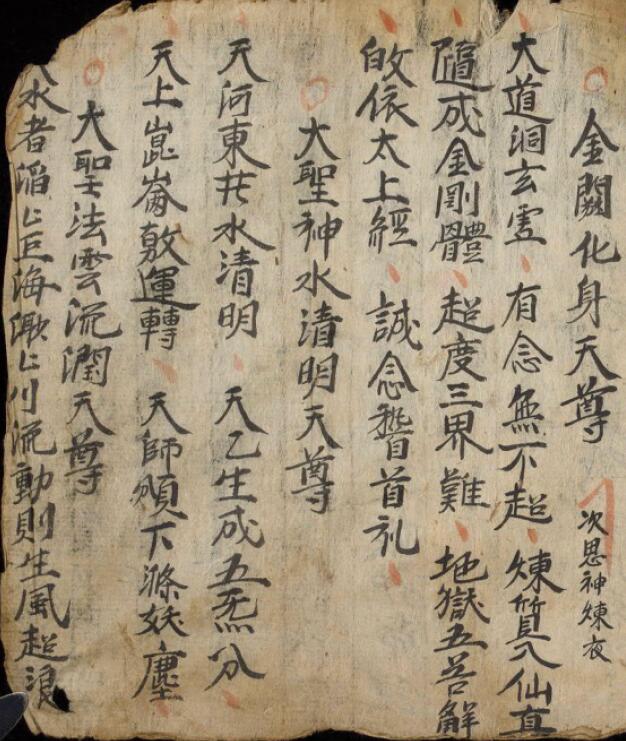 ○金闕化身天尊 次思神煉夜
大道洞玄虛、有念無不超、煉質入仙真
隨成金剛體、超度三界難、地獄五苦解
皈依太上經、誠念稽首礼、
○大聖神水清明天尊
天河東井水清明、天乙生成五炁分、
天上崑崙敷運轉、天師頒下滌妖塵、
○大聖法雲流潤天尊
水者滔〻巨海潄〻川流動則生風起浪